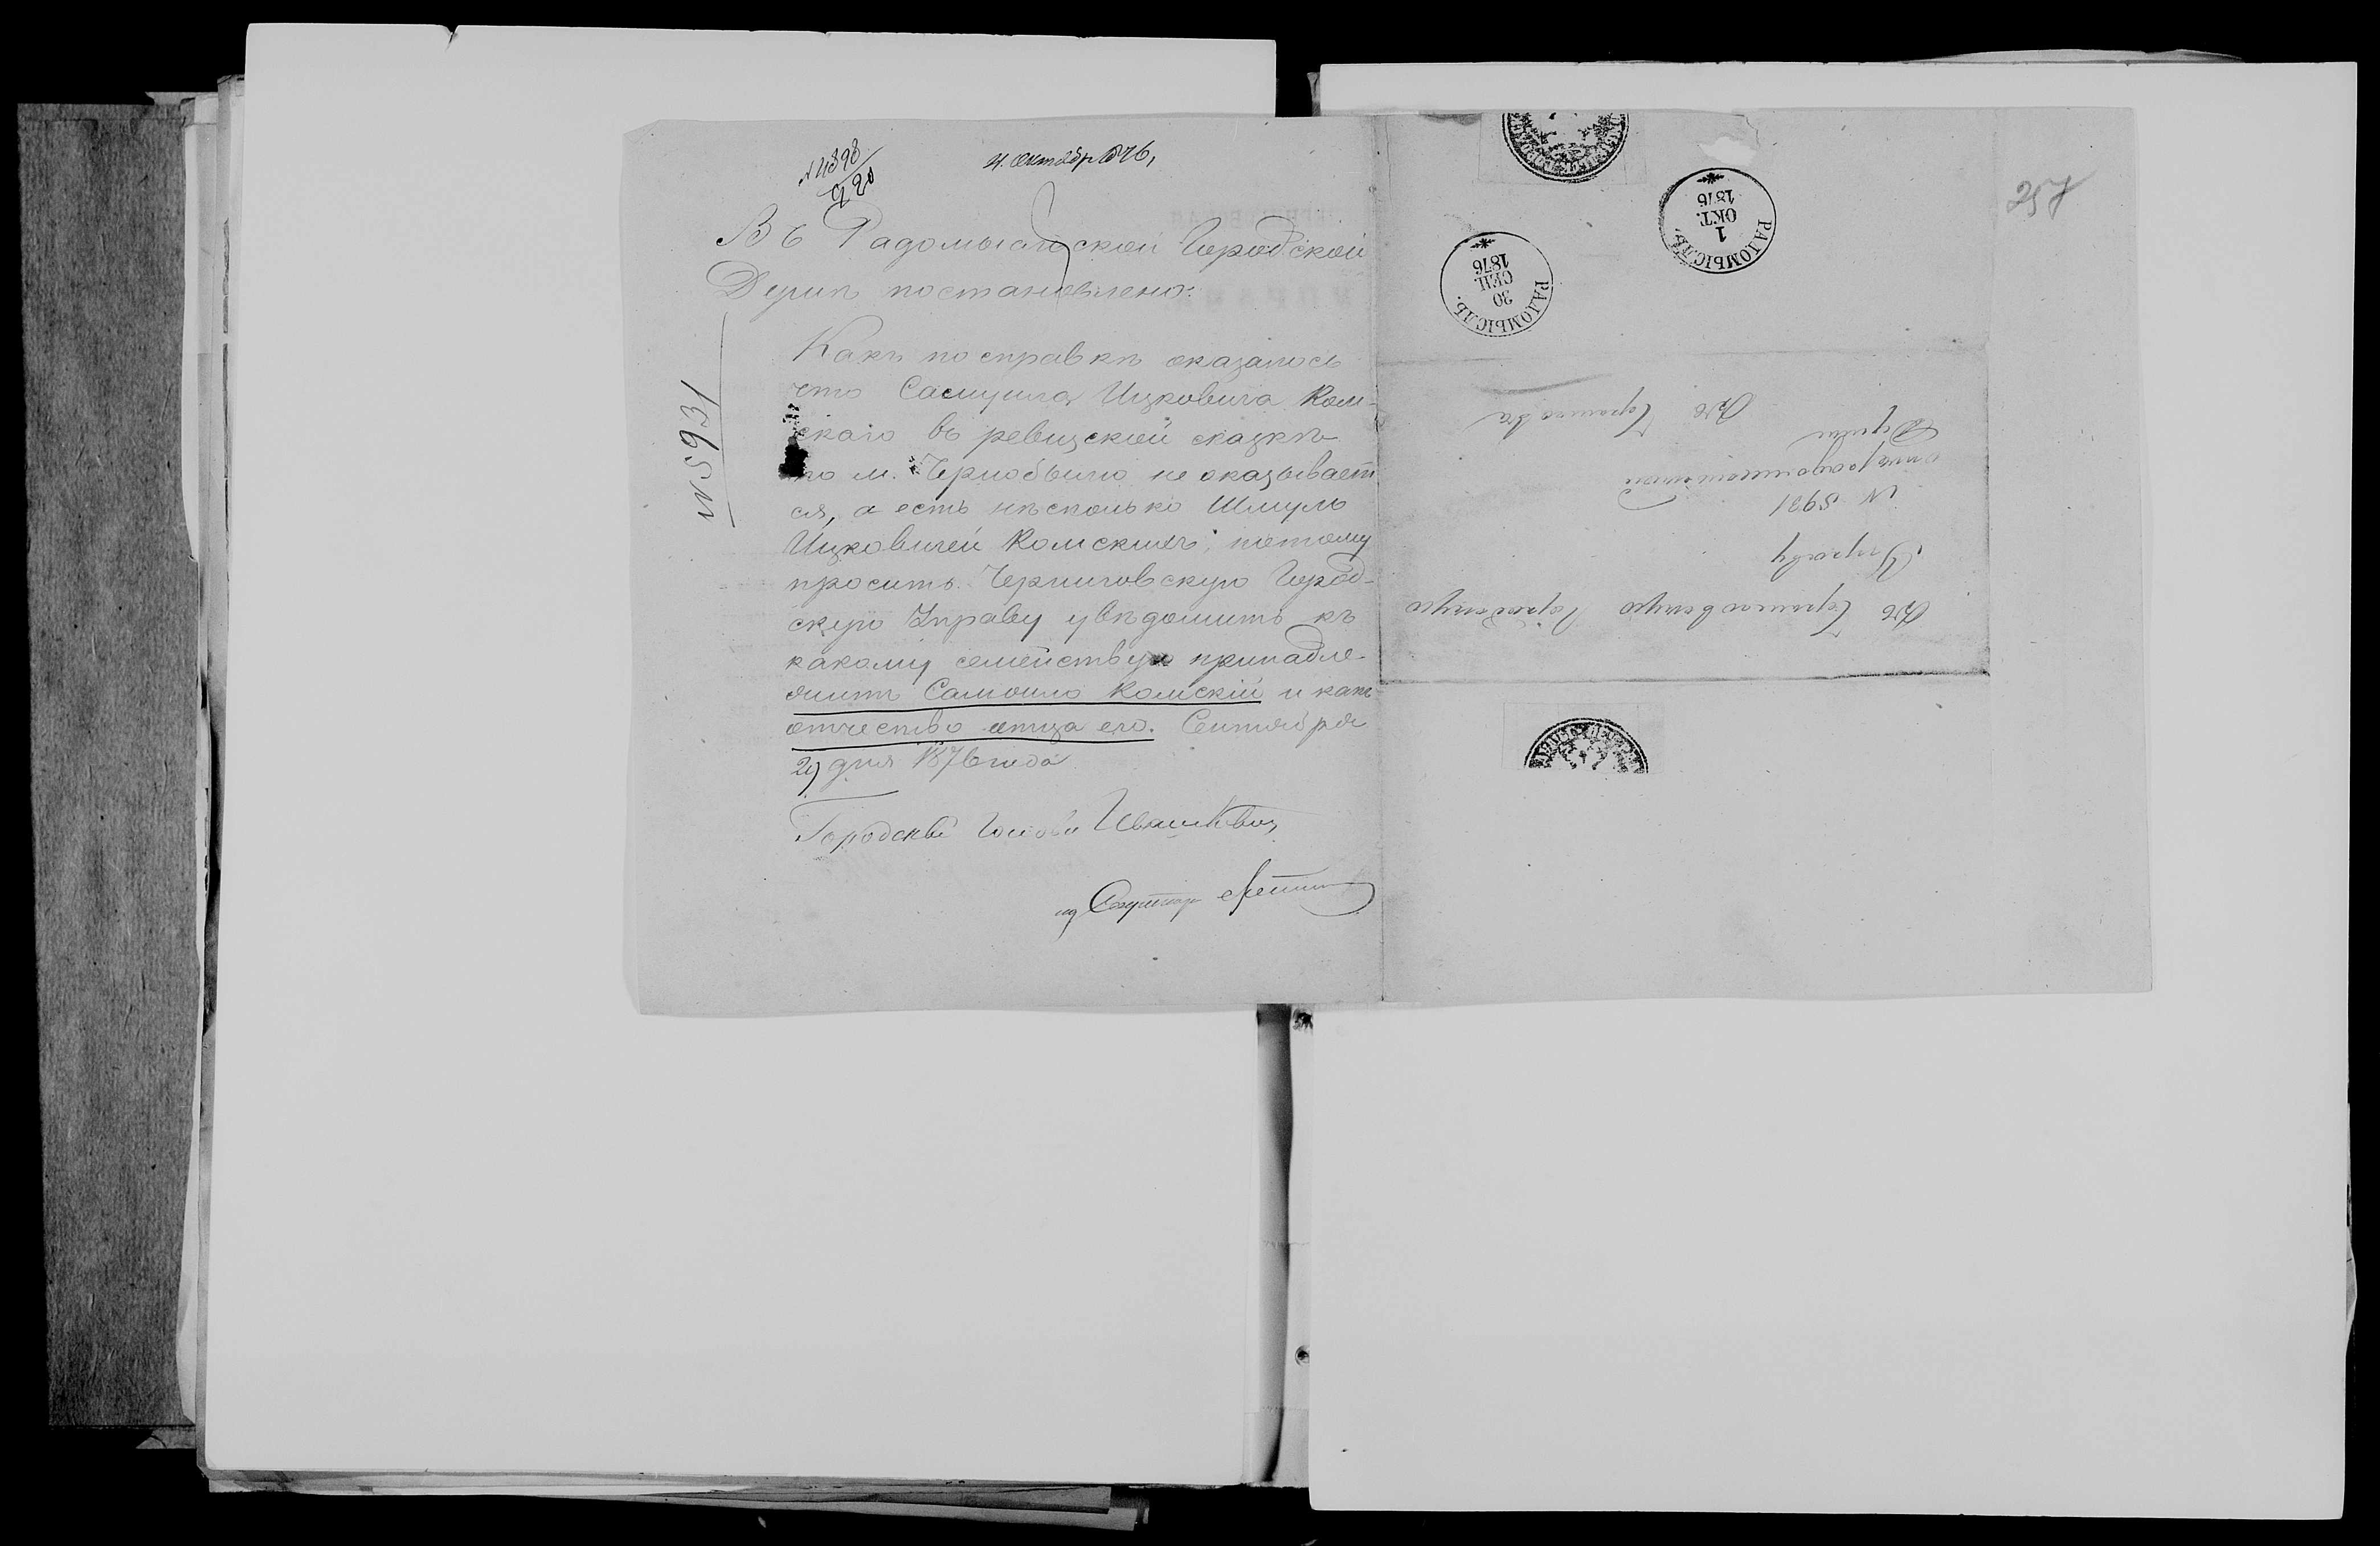 № 4898
920
4. Октябр 1876,
Въ Радомысльской Городской
Думѣ постановлено:
№ 5931
Какъ по справкѣ оказалось
что Самуила Ицковича Ком-
скаго въ ревизской сказкѣ
по м. Чернобылю не оказывает
ся, а есть нѣсколько Шмуль
Ицковичей Комскихъ, потому
просить Черниговскую Город-
скую Управу увѣдомить къ
какому семейству принадле-
житъ Самоило Комскій и какъ
отчество отца его. Сентября
29 дня 1876 года
Городской Голова Ивашкевич
ид Секретар
257
РАДОМЫСЛЬ.
1
ОКТ.
1876
РАДОМЫСЛЬ.
30
СЕН.
1876
Въ Черниговскую Городскую
Управу
№ 5931
отъ радомысльской
Думы
Въ Чернигов